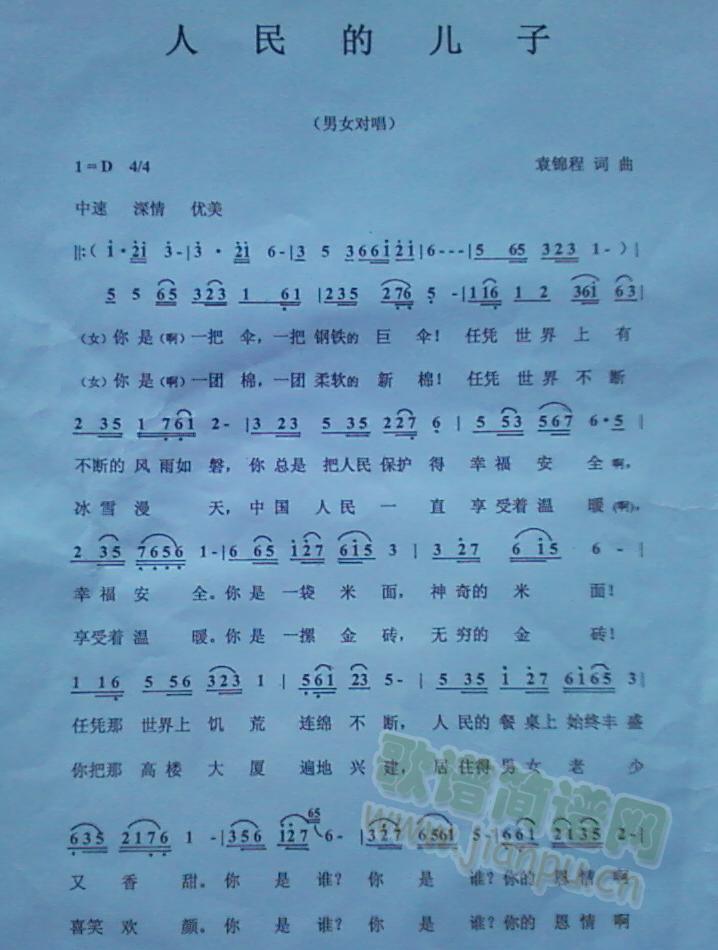 人民的儿子
（男女对唱）
1=D 4/4 袁锦程 词 曲
中速 深情 优美
‖:（ i·2i 3-|3·2i 6-|3 5 3 6 6 i 2 i|6---|5 65 323 1-）|
5 5 65 323 1 61 |235 276 5 -|116 1 2 361 63|
（女）你是（啊）一把 伞，一把 钢铁的 巨 伞！ 任凭 世界 上 有
（女）你是（啊）一团 棉，一团 柔软的 新 棉！ 任凭 世界 不 断
2 35 1 761 2- |3 23 5 35 227 6 | 5 53 567 6·5 |
不断的 风 雨如 磐，你 总是 把人民 保护 得 幸 福 安 全 啊，
冰 雪 漫 天，中 国 人 民 一 直 享 受 着 温 暖（啊），
2 35 7656 1-|6 65 i27 6i5 3 | 3 27 6 i5 6 -|
幸 福 安 全。你 是 一 袋 米 面， 神 奇 的 米 面！
享 受 着 温 暖。你 是 一 摞 金 砖， 无 穷 的 金 砖！
1 16 5 56 323 1 | 561 23 5- | 5 35 i 27 6165 3|
任凭那 世界上 饥 荒 连绵 不 断， 人 民的 餐 桌上 始终丰 盛
你把那 高楼 大 厦 遍地 兴 建， 居 住得 男 女 老 少
635 2176 1 -|356 i27 65 6-|327 6561 5-|661 2135 2-|
又 香 甜。你 是 谁？ 你 是 谁？你的 恩 情 啊
喜 笑 欢 颜。你 是 谁？ 你 是 谁？你的 恩 情 啊
歌谱简谱网
www.jianpu.cn